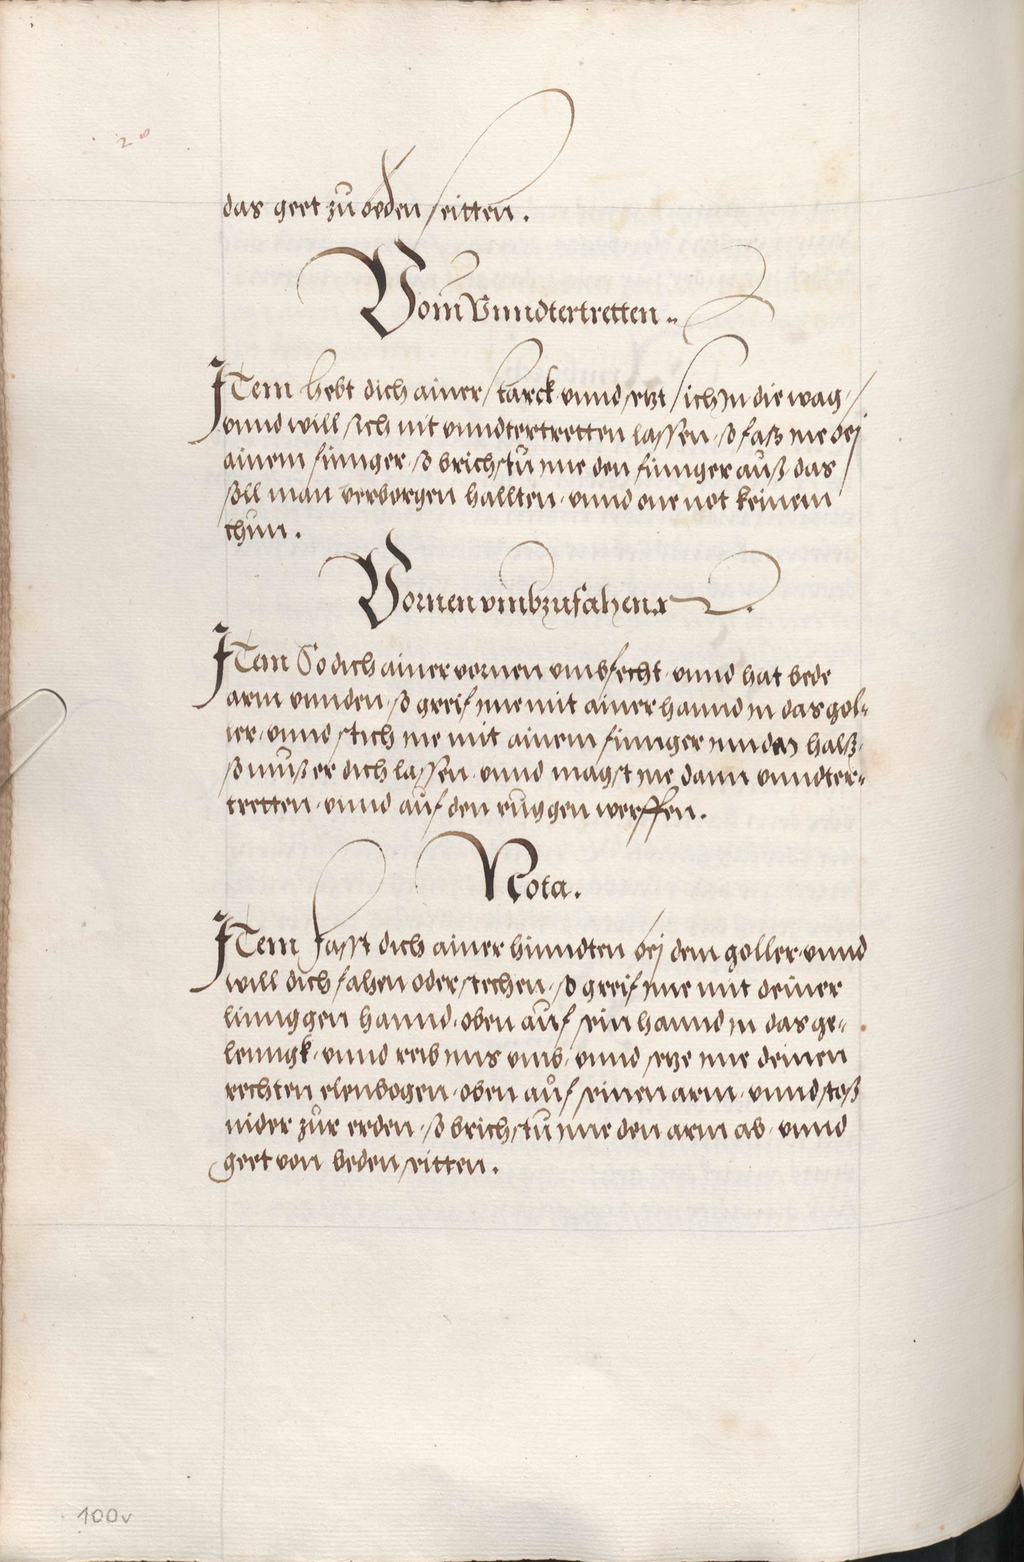 das geet zů beden seitten.
Vom Vnndtertretten..
Item hebt dich ainer starck vnnd setzt sich jn die wag /
vnnd will sich nit vnndtertretten lassen, so faß jne bej
ainem finnger, so brichstu jme den finnger auß das
soll man verborgen hallten, vnnd one not keinem
thun.
Vornen vmbzufahen
Item So dich ainer vornen vmbfecht, vnnd hat bede
arm vnnden, so greif jme mit ainer hannd jn das gol-
ler, vnnd stich jne mit ainem finnger jnn den halß,
so muß er dich lassen, vnnd magst jne dann vnndter-
tretten, vnnd auf den růggen werffen.
Nota.
Item fasst dich ainer hinndten bej dem goller, vnnd
will dich fahen oder stechen, so greif jme mit deiner
linnggen hannd, oben auf sein hannd jn das ge-
lenngk, vnnd reib jms vmb, vnnd setze jme deinen
rechten elenbogen, oben auf seinen arm, vnnd stoß
nider zůr erden, so brichstu jme den arm ab, vnnd
geet von beden seitten.
100v